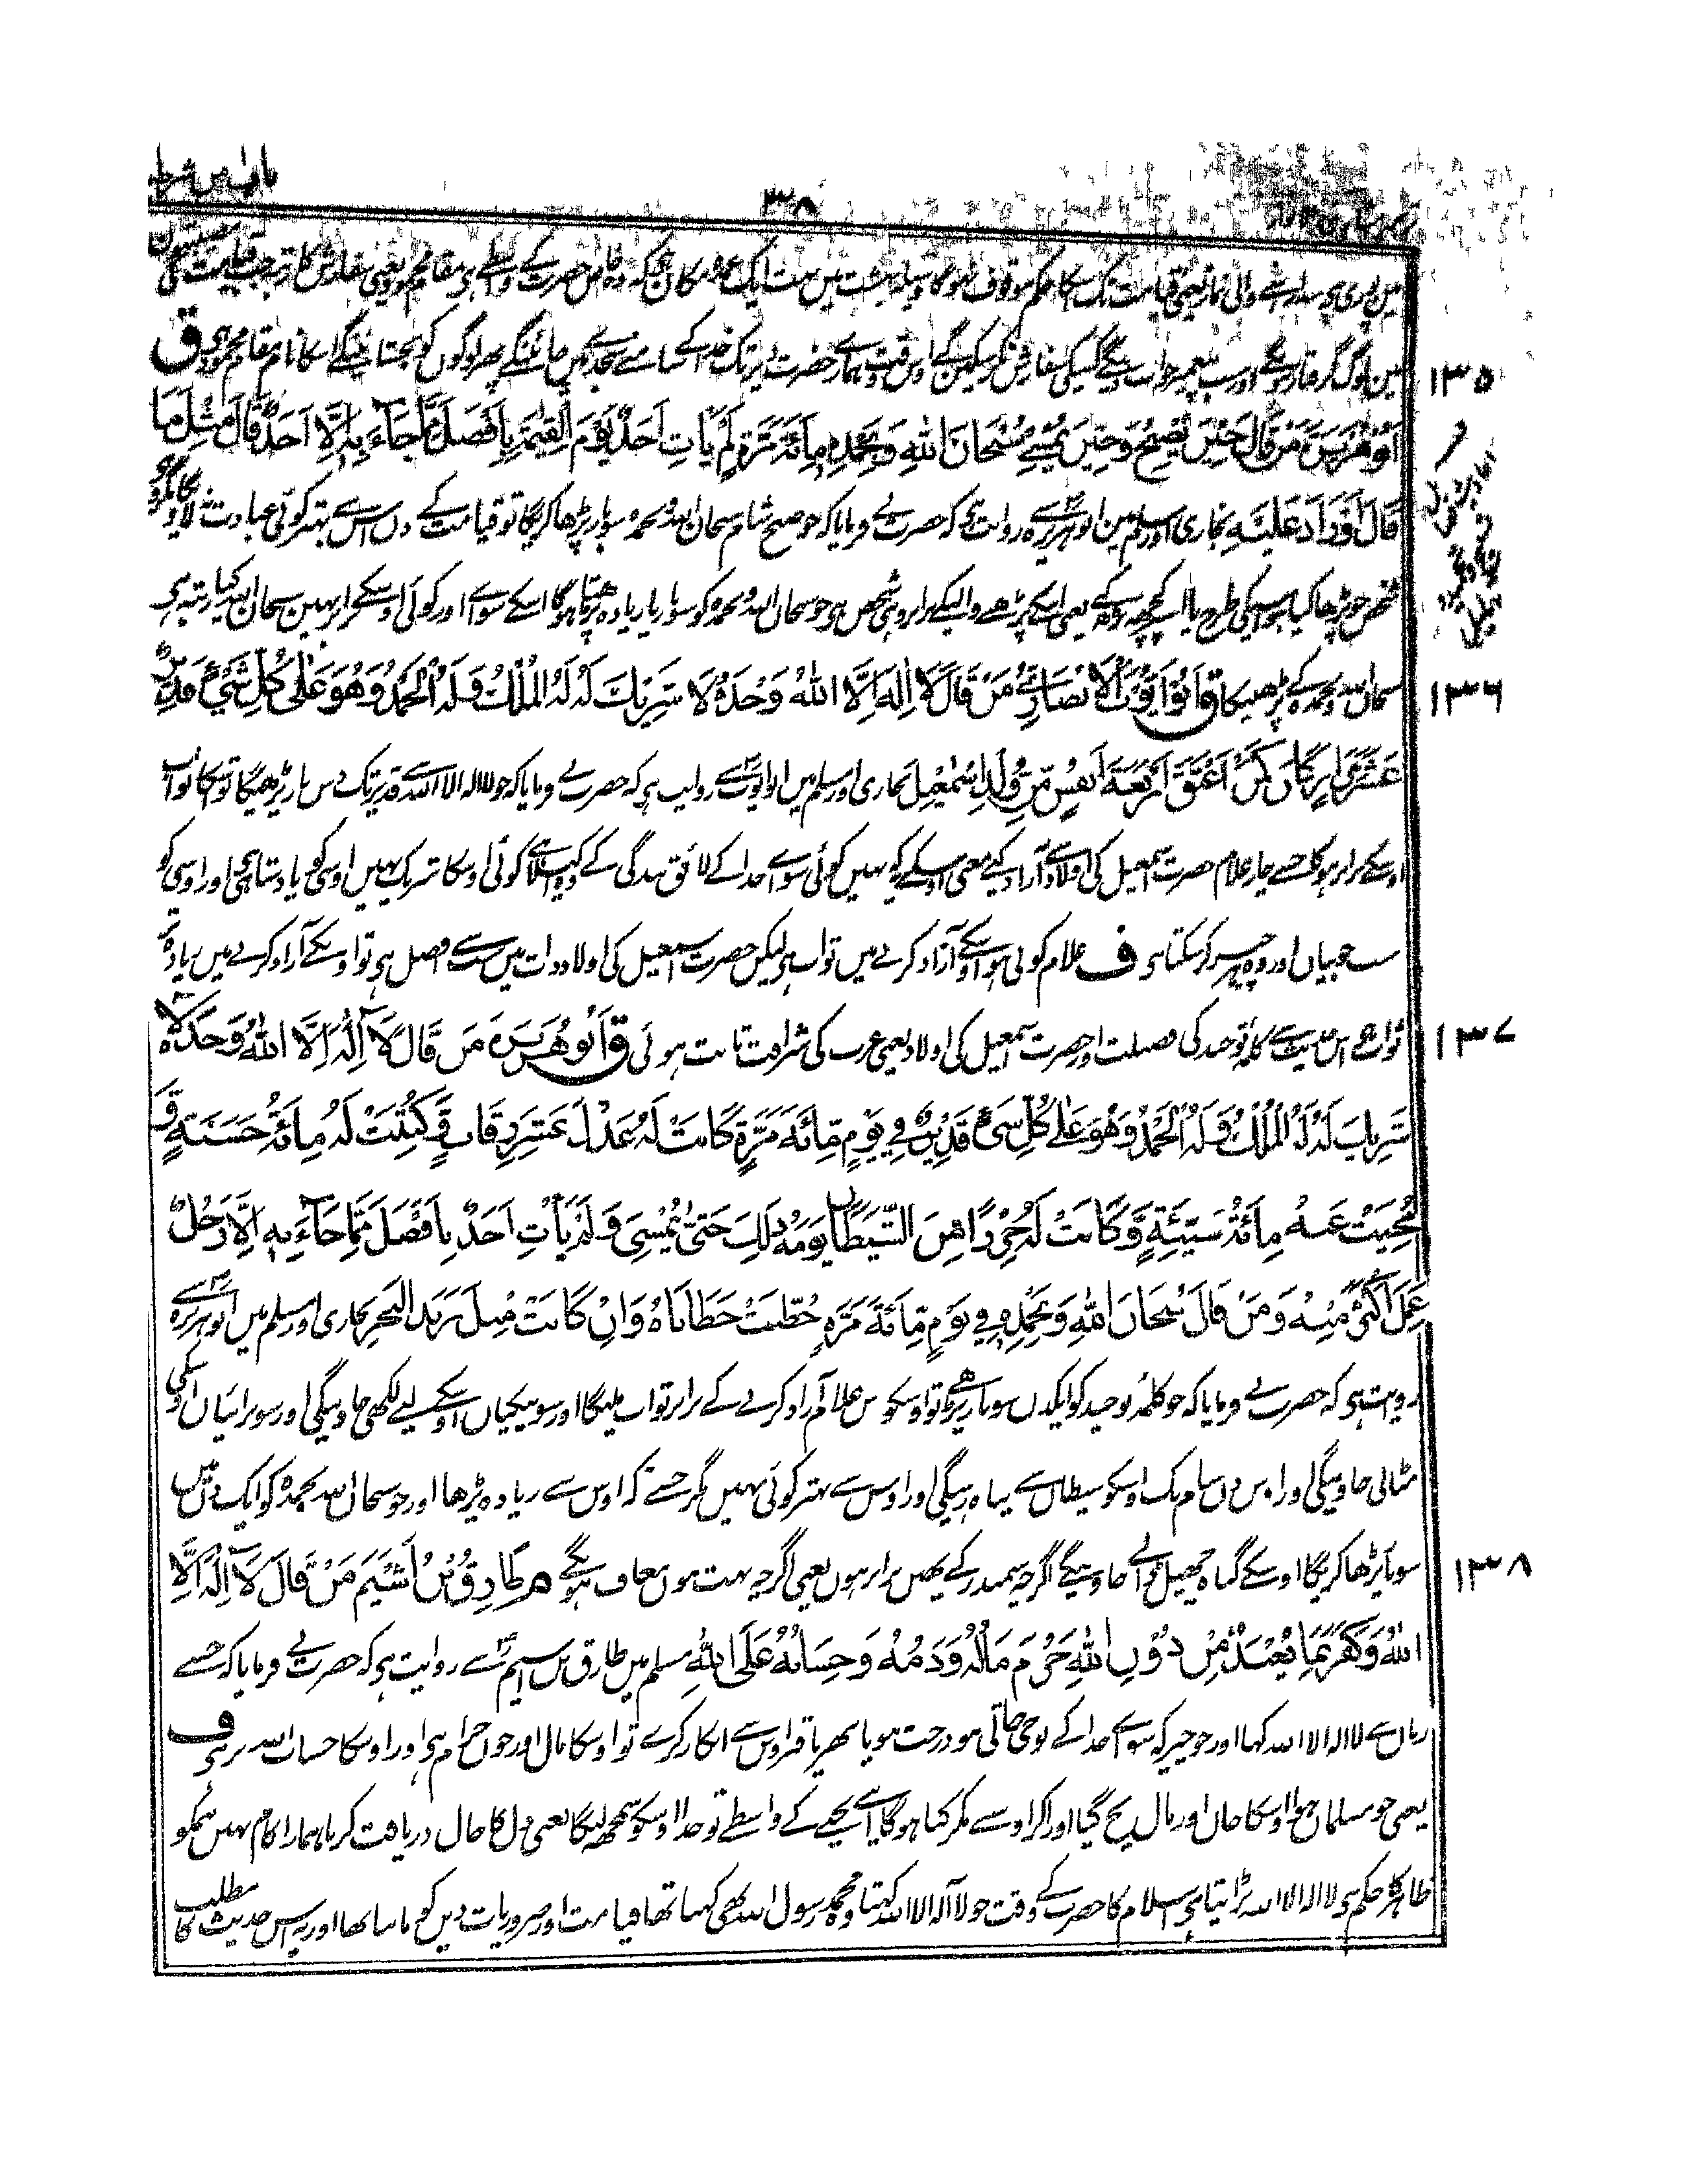 ٣٨
میں لوگ گرفتار ہونگے اور سب پیغمبر جواب دینگے کسیکی سفارش نکرسکینگے اوس وقت ہمارے حضرت دیر تک خدا کے سامنے سجدے میں جائینگے پھر لوگوں کو بخشائینگے اسکا نام مقام محمود ہی ق
١٣٥
اَبُوْهُرَيْرَةَ مَنْ قَالَ حِيْنَ يُصْبِحُ وَحِيْنَ يُمْسِيْ سُبْحَانَ اللّٰهِ وَبِحَمْدِهٖ مِائَةَ مَرَّةٍ لَمْ يَأْتِ اَحَدٌ يَوْمَ الْقِيٰمَةِ بِاَفْضَلَ مِمَّا جَآءَ بِهٖ اِلَّا اَحَدٌ قَالَ مِثْلَ مَا
قَالَ اَوْ زَادَ عَلَيْهِ بخاری اور مسلم میں ابوہریرہ سے روایت ہے کہ حضرت نے فرمایا کہ جو صبح شام سبحان اللہ وبحمدہ سوبار پڑھا کریگا تو قیامت کے دن اس سے بہتر کوئی عبادت نلاویگا مگر وہ
شخص جو پڑھا کیا ہو اسیکی طرح یا اسے کچھ بڑھ کے یعنی اسکے پڑھنے والیکے برابر وہی شخص ہی جو سبحان اللہ وبحمدہ کو سو بار یا زیادہ پڑھتا ہوگا اسکے سوا اور کوئی اوسکے برابر نہیں سبحان اللہ کیا رتبہ ہی
سبحان اللہ وبحمدہ کے پڑھنیکا ق اَبُوْاَيُّوْبَ الْاَنْصَارِيُّ مَنْ قَالَ لَا اِلٰهَ اِلَّا اللّٰهُ وَحْدَهٗ لَا شَرِيْكَ لَهٗ لَهُ الْمُلْكُ وَلَهُ الْحَمْدُ وَهُوَ عَلٰى كُلِّ شَيْءٍ قَدِيْرٌ
١٣٦
عَشْرَ مِرَارٍ كَانَ كَمَنْ اَعْتَقَ اَرْبَعَةَ اَنْفُسٍ مِّنْ وُلْدِ اِسْمٰعِيْلَ بخاری اور مسلم میں ابو ایوب سے روایت ہی کہ حضرت نے فرمایا کہ جو لا الہ الا اللہ سے قدیر تک دس بار پڑھیگا تو اسکا ثواب
اوسکے برابر ہوگا جسنے چار غلام حضرت اسمعیل کی اولاد سے آزاد کیے معنی اوسکے یہ کہ نہیں کوئی سوائے خدا کے لائق بندگی کے وہ اکیلا ہے کوئی اوسکا شریک نہیں اوسی کو بادشاہی ہی اور اوسی کو
سب خوبیاں اور وہ ہر چیز کر سکتا ہی ف غلام کوئی ہو اوسکے آزاد کرنے میں ثواب ہی لیکن حضرت اسمعیل کی اولاد ذات میں سب سے افضل ہی تو اوسکے آزاد کرنے میں زیادہ تر
ثواب ہی اس حدیث سے کلمۂ توحید کی فضیلت اور حضرت اسمعیل کی اولاد یعنی عرب کی شرافت ثابت ہوئی ق اَبُوْهُرَيْرَةَ مَنْ قَالَ لَآ اِلٰهَ اِلَّا اللّٰهُ وَحْدَهٗ لَا
١٣٧
شَرِيْكَ لَهٗ لَهُ الْمُلْكُ وَلَهُ الْحَمْدُ وَهُوَ عَلٰى كُلِّ شَيْءٍ قَدِيْرٌ فِيْ يَوْمٍ مِّائَةَ مَرَّةٍ كَانَتْ لَهٗ عَدْلَ عَشْرِ رِقَابٍ وَّكُتِبَتْ لَهٗ مِائَةُ حَسَنَةٍ وَّ
مُحِيَتْ عَنْهُ مِائَةُ سَيِّئَةٍ وَّكَانَتْ لَهٗ حِرْزًا مِنَ الشَّيْطَانِ يَوْمَهٗ ذٰلِكَ حَتّٰى يُمْسِيَ وَلَمْ يَأْتِ اَحَدٌ بِاَفْضَلَ مِمَّا جَآءَ بِهٖ اِلَّا رَجُلٌ
عَمِلَ اَكْثَرَ مِنْهُ وَمَنْ قَالَ سُبْحَانَ اللّٰهِ وَبِحَمْدِهٖ فِيْ يَوْمٍ مِّائَةَ مَرَّةٍ حُطَّتْ خَطَايَاهُ وَاِنْ كَانَتْ مِثْلَ زَبَدِ الْبَحْرِ بخاری اور مسلم میں ابو ہریرہ سے
روایت ہی کہ حضرت نے فرمایا کہ جو کلمۂ توحید کو ایکدن سو بار پڑھے تو اوسکو دس غلام آزاد کرنے کے برابر ثواب ملیگا اور سو نیکیاں اوسکے لیے لکھی جاوینگی اور سو برائیاں اوسکی
مٹائی جاوینگی اور اوس دن شام تک اوسکو شیطان سے پناہ رہیگی اور اوس سے بہتر کوئی نہیں مگر جسنے کہ اوس سے زیادہ پڑھا اور جو سبحان اللہ وبحمدہ کو ایک دن میں
سو بار پڑھا کریگا اوسکے گناہ جھیل ڈالے جاوینگے اگرچہ سمندر کے پھین برابر ہوں یعنی اگرچہ بہت ہوں معاف ہونگے م طَارِقُ بْنُ اَشْيَمَ مَنْ قَالَ لَآ اِلٰهَ اِلَّا
١٣٨
اللّٰهُ وَكَفَرَ بِمَا يُعْبَدُ مِنْ دُوْنِ اللّٰهِ حَرُمَ مَالُهٗ وَدَمُهٗ وَحِسَابُهٗ عَلَى اللّٰهِ مسلم میں طارق بن اشیم سے روایت ہی کہ حضرت نے فرمایا کہ جسنے
زبان سے لا الہ الا اللہ کہا اور جو چیز کہ سوائے خدا کے پوجی جاتی ہو درخت ہو یا پتھر یا قبر اوس سے انکار کرے تو اوسکا مال اور خون حرام ہی اور اوسکا حساب اللہ پر ہی ف
یعنی جو مسلمان ہوا اوسکا جان اور مال بچ گیا اور اگر اوسنے مکر کیا ہوگا اپنے بچنے کے واسطے تو خدا اوسکو سمجھ لیگا یعنی دل کا حال دریافت کرنا ہمارا کام نہیں ہمکو
ظاہر کا حکم ہی لا الہ الا اللہ بڑا پتا ہی اسلام کا حضرت کے وقت جو لا الہ الا اللہ کہتا وہ محمد رسول اللہ بھی کہتا تھا قیامت اور ضروریات دین کو مانتا تھا اور یہ اس حدیث کا مطلب